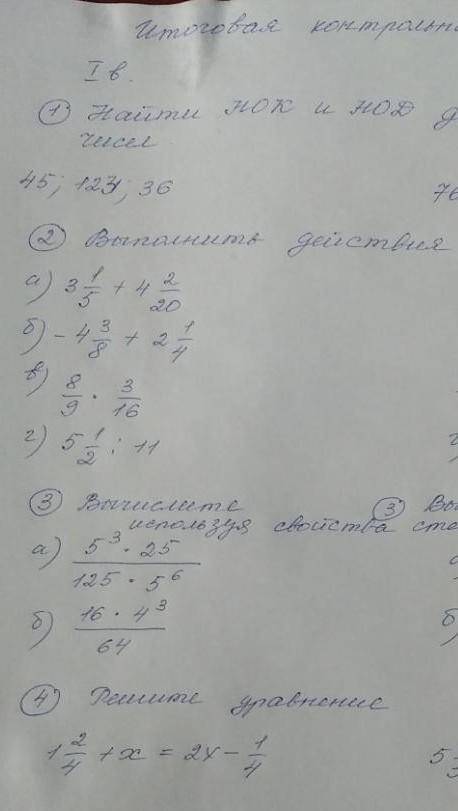 Итоговая контрольн
I в.
① Найти НОК и НОД д
чисел
45; 123; 36
76
② Выполнить действия
а) 3 1/5 + 4 2/20
б) - 4 3/8 + 2 1/4
в) 8/9 · 3/16
г) 5 1/2 : 11
③ Вычислите
используя свойства сте
③ Вы
а) 5³ · 25 / 125 · 5⁶
б) 16 · 4³ / 64
б)
④ Решите уравнение
1 2/4 + x = 2x - 1/4
5